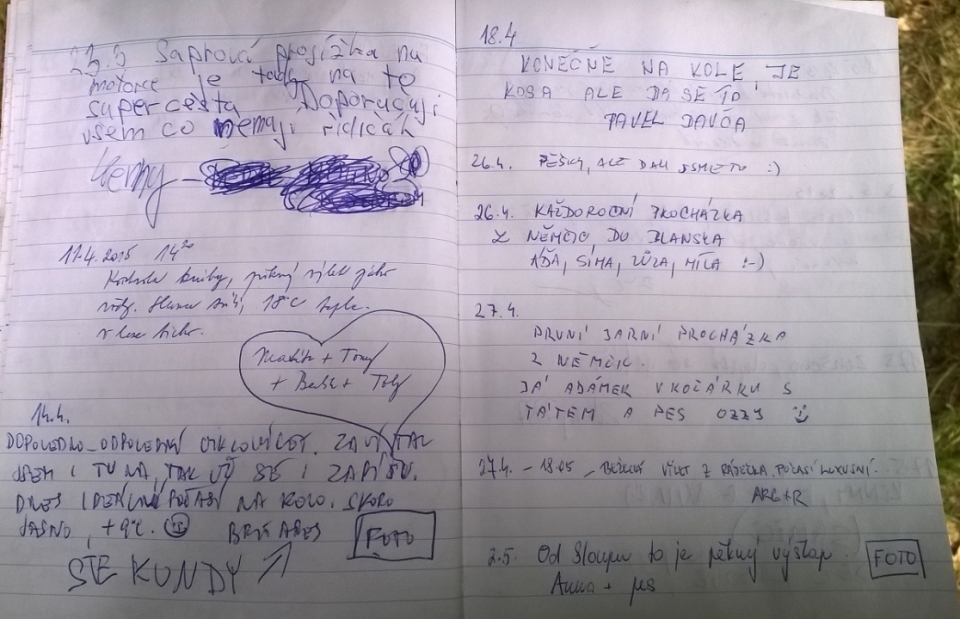 23.3 Saprová projížka na
motorce je tady na té
supercesta Doporučuji
všem co nemají řidičák
11.4.2015 14²⁰
Kontrola knihy, pěkný výlet
18°C
v lese ticho.
+ Tony
+ Toby
14.4.
DOPOLEDNO-ODPOLEDNÍ CYKLOVÝLET. ZAVÍTAL
JSEM I TU NA, TAK UŽ SE I ZAPÍŠU.
DNES IDEÁLNÍ POČASÍ NA KOLO. SKORO
JASNO, +9°C.
FOTO
STE KUNDY
18.4
KONEČNĚ NA KOLE JE
KOSA ALE DÁ SE TO
PAVEL
26.4. PĚŠKY, ALE DALI JSME TO :)
26.4. KAŽDOROČNÍ PROCHÁZKA
Z NĚMČIC DO BLANSKA
AĎA, SÍMA, ZŮZA, MÍLA :-)
27.4.
PRVNÍ JARNÍ PROCHÁZKA
Z NĚMČIC.
JÁ ADÁMEK V KOČÁRKU S
TÁTEM A PES OZZY
27.4. - 18.05 - VÝLET Z RÁJEČKA, POČASÍ LUXUSNÍ.
2.5. Od Sloupu to je pěkný výšlap.
FOTO
Anna + pes